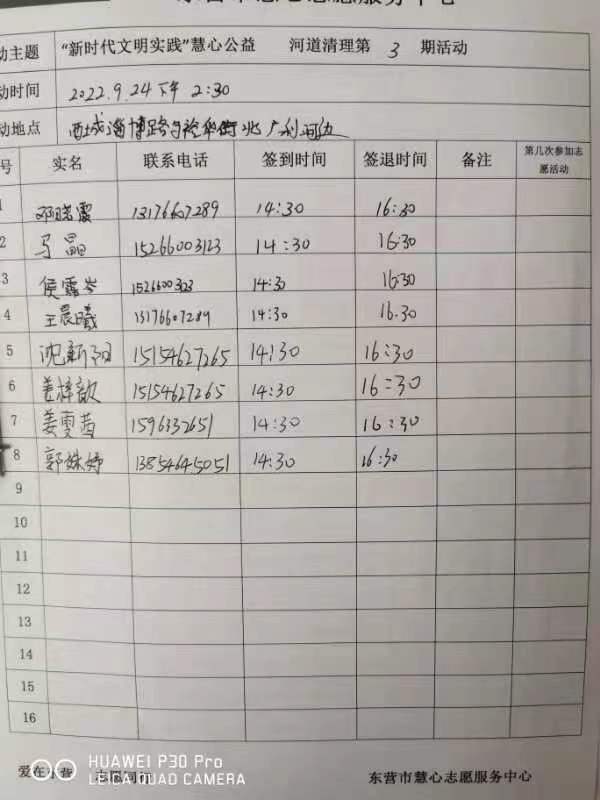 东营市慧心志愿服务中心
动主题 “新时代文明实践”慧心公益 河道清理第 3 期活动
动时间 2022.9.24下午 2:30
动地点 西城淄博路与裕华街北广利河边
号 实名 联系电话 签到时间 签退时间 备注 第几次参加志愿活动
1 邓晓霞 13176607289 14:30 16:30
2 马晶 15266003123 14:30 16:30
3 侯露岑 1526600323 14:30 16:30
4 王晨曦 13176607289 14:30 16.30
5 沈新阳 15154627265 14:30 16:30
6 姜梓歆 15154627265 14:30 16:30
7 姜雯茜 1596332651 14:30 16:30
8 郭姝妤 13854645051 14:30 16:30
9
10
11
12
13
14
15
16
爱在东营 志愿同行 东营市慧心志愿服务中心
HUAWEI P30 Pro
LEICA QUAD CAMERA